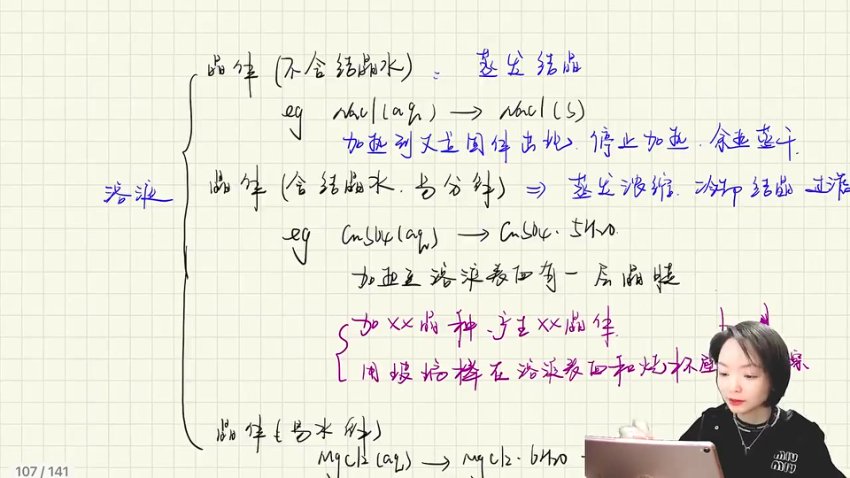 晶体(不含结晶水): 蒸发结晶
eg NaCl(aq) → NaCl(s)
加热到大量固体出现, 停止加热, 余热蒸干.
溶液
晶体(含结晶水.易分解) ⇒ 蒸发浓缩. 冷却结晶 过滤
eg CuSO4(aq) → CuSO4·5H2O.
加热至溶液表面有一层晶膜
加XX晶种.产生XX晶体.
用玻璃棒在溶液表面和烧杯
晶体(易水解)
MgCl2(aq) → MgCl2·6H2O
miu
miu
107 / 141